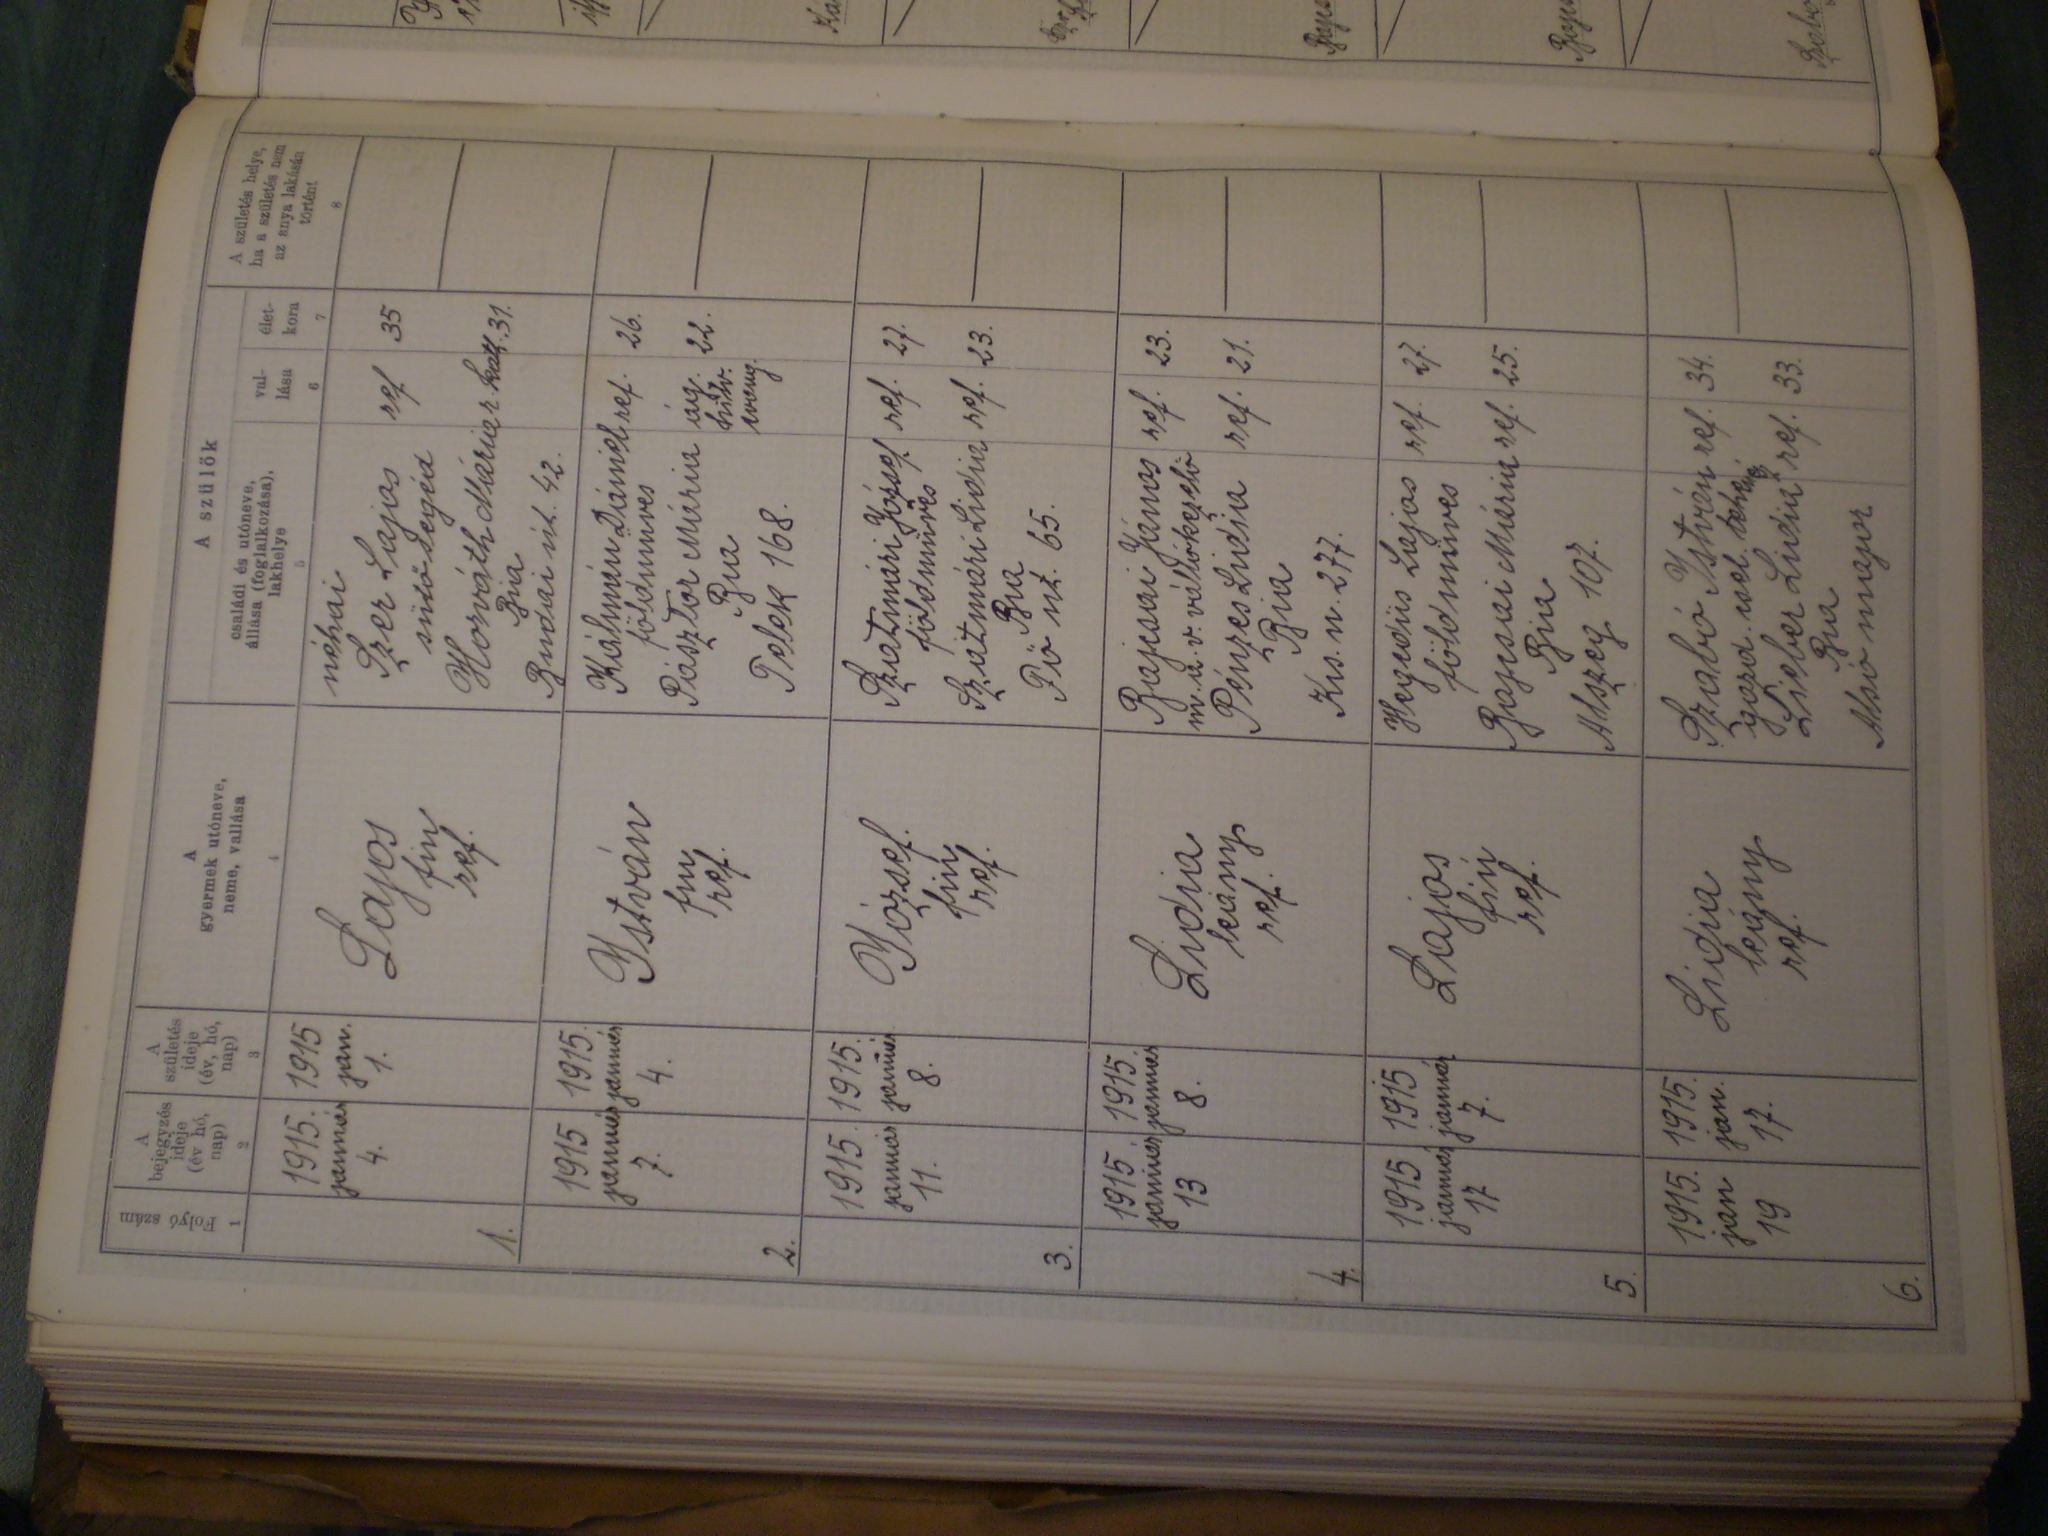 A szülők
Folyó szám
A
bejegyzés
ideje
(év hó,
nap)
A
születés
ideje
(év, hó,
nap)
A
gyermek utóneve,
neme, vallása
családi és utóneve,
állása (foglalkozása),
lakhelye
val-
lása
élet-
kora
A születés helye,
ha a születés nem
az anya lakásán
történt
1
2
3
4
5
6
7
8
1.
1915.
január
4.
1915
jan.
1.
Lajos
fiu
ref.
néhai
Szer Lajos
sütősegéd
ref 35
Horváth Mária r. kath. 31.
Bia
Budai út. 42.
2.
1915
január
7.
1915.
január
4.
István
fiu
ref.
Kálmán Dániel ref. 26.
földműves
Pásztor Mária ág. 22.
hitv.
evang.
Bia
Telek 168.
3.
1915.
január
11.
1915.
január
8.
József.
fiu
ref.
Szatmári József ref. 27.
földműves
Szatmári Lidia ref. 23.
Bia
Fő ut. 65.
4.
1915.
január
13
1915.
január
8.
Lidia
leány
ref.
Bajcsai János ref. 23.
m. á. v. váltókezelő
Pénzes Lidia ref. 21.
Bia
Kis. u. 277.
5.
1915
január
17
1915
január
7.
Lajos
fiú
ref.
Hegedüs Lajos ref. 27.
földműves
Bajcsai Mária ref. 25.
Bia
Alszeg 107.
6.
1915.
jan
19
1915.
jan.
17.
Lidia
leány
ref.
Szabó István ref. 34.
gazd. cseléd
Lieber Lidia ref. 33.
Bia
Alsó major